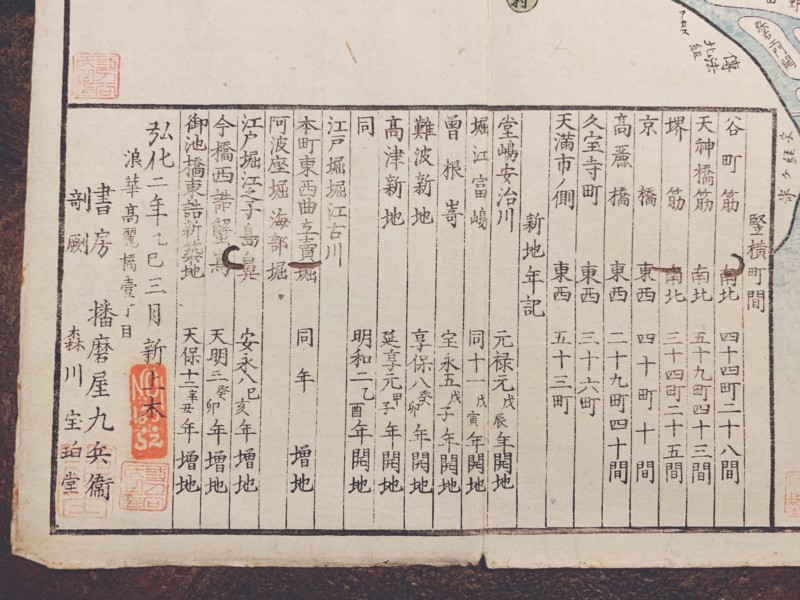 竪横町間
谷町筋 南北 四十四町二十八間
天神橋筋 南北 五十九町四十三間
堺筋 南北 三十四町二十五間
京橋 東西 四十町十間
高麗橋 東西 二十九町四十間
久宝寺町 東西 三十六町
天満市ノ側 東西 五十三町
新地年記
堂嶋安治川 元禄元戊辰年開地
堀江富嶋 同十一戊寅年開地
曽根嵜 宝永五戊子年開地
難波新地 享保八癸卯年開地
高津新地 延享元甲子年開地
同 明和二乙酉年開地
江戸堀堀江古川
本町東西曲立賣堀 同年増地
阿波座堀海部堀
江戸堀江之子島 安永八己亥年増地
今橋西詰蟹島 天明三癸卯年増地
御池橋東詰新築地 天保十二辛丑年増地
弘化二年乙巳三月新上木
浪華高麗橋壹丁目
書房 播磨屋九兵衞
剞劂 森川宝珀堂